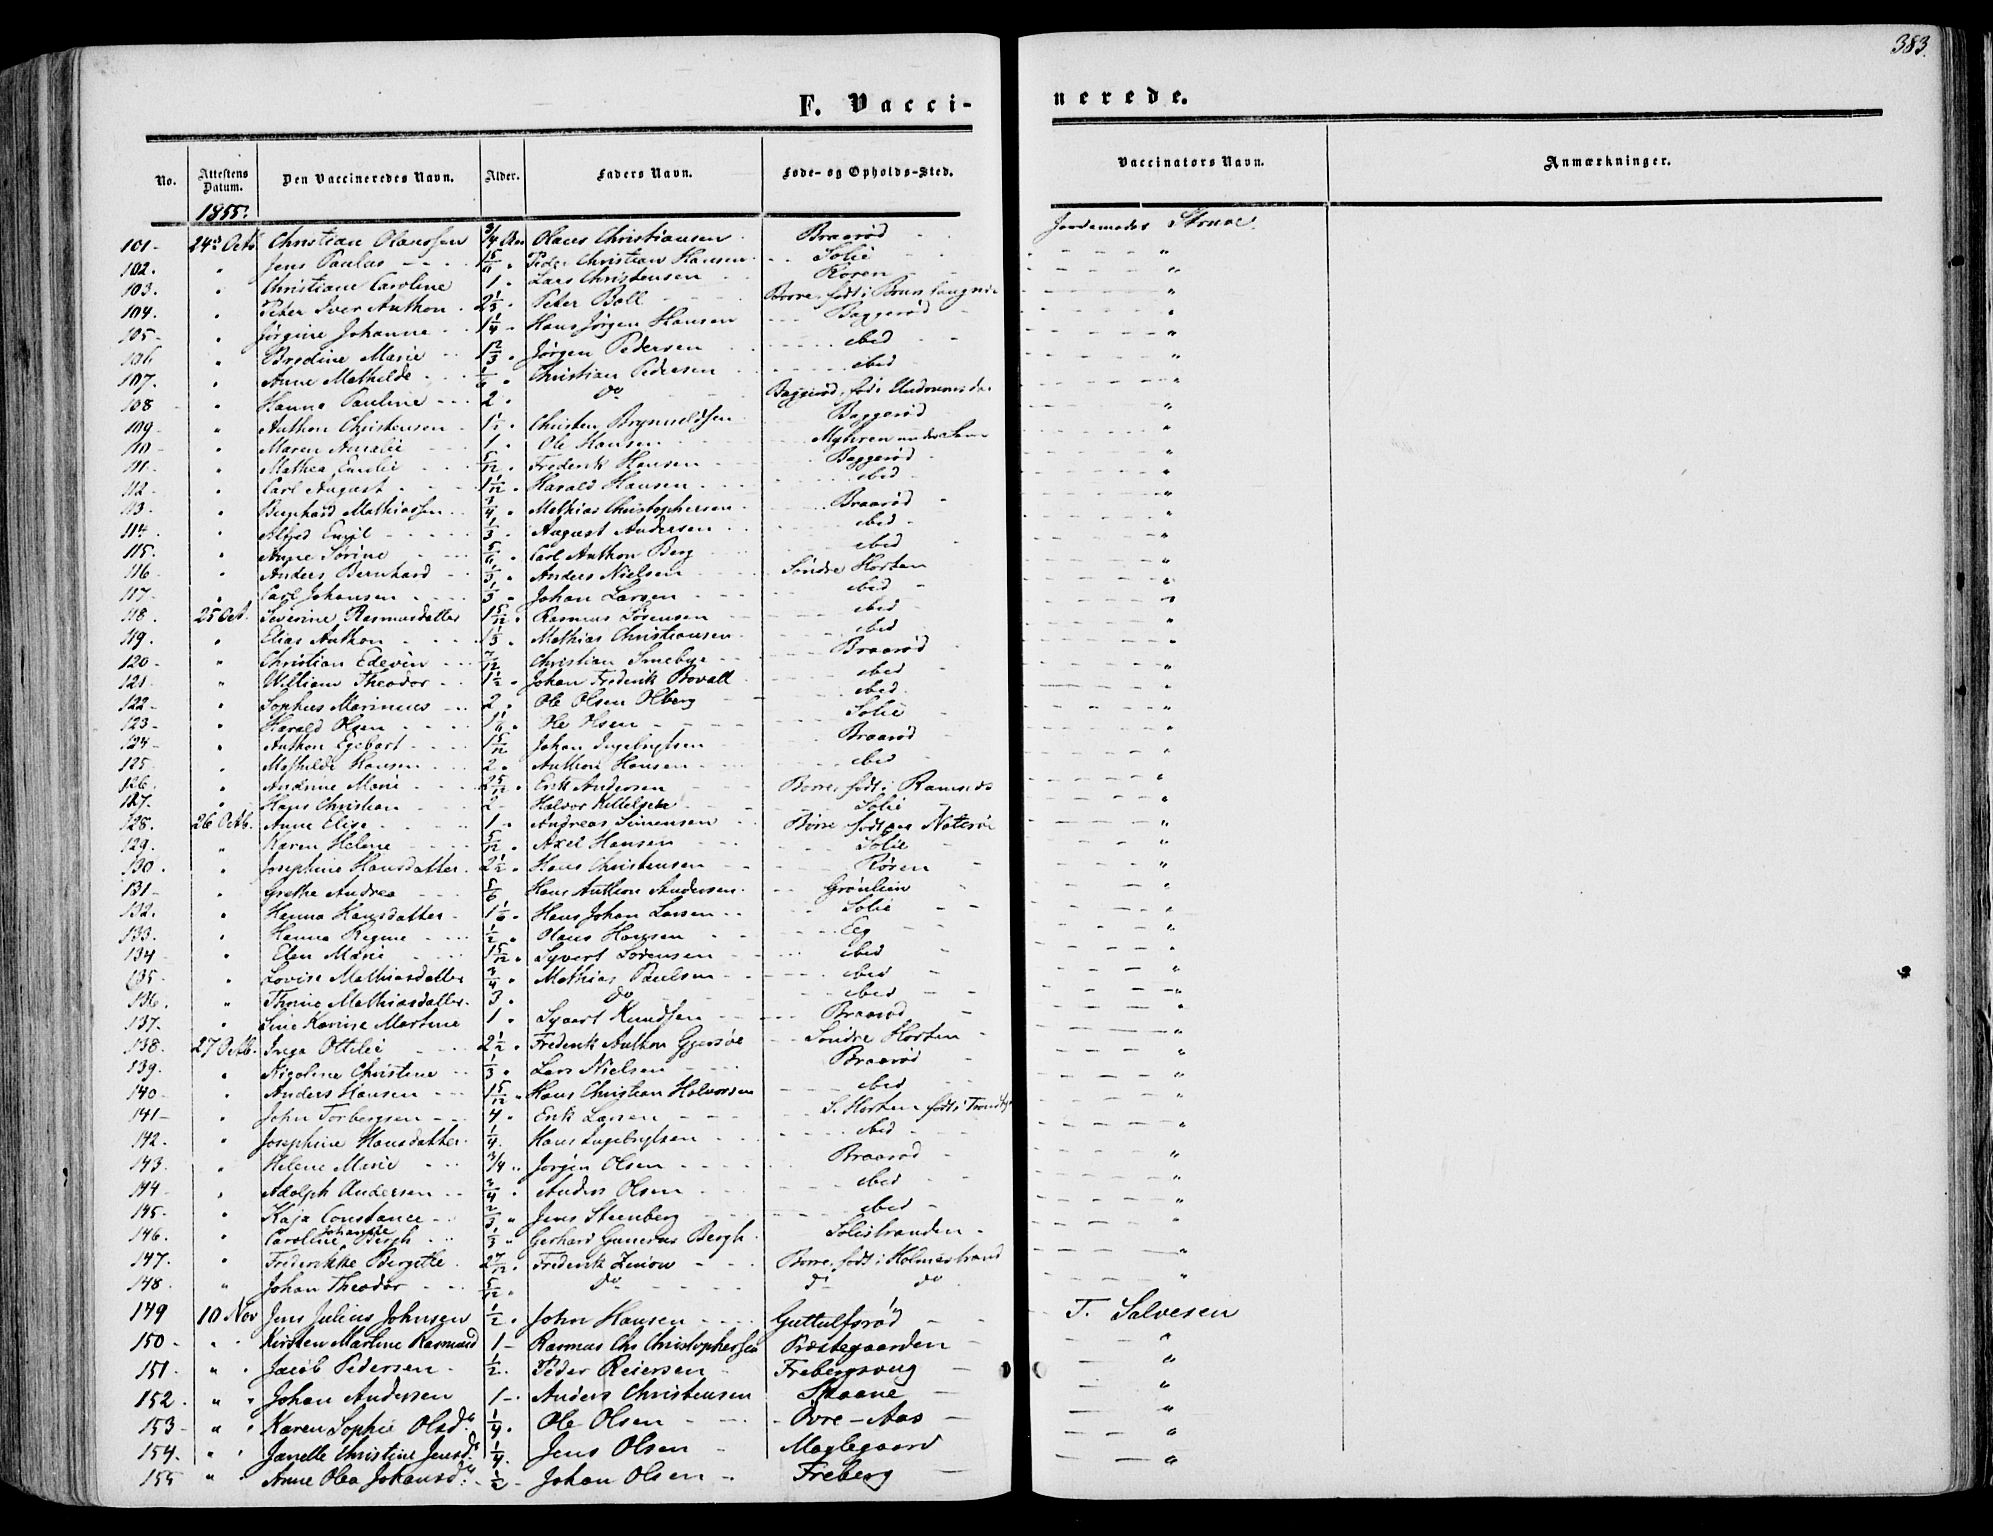 383.
F. Vacci-
nerede.
No. Attestens Datum. Den Vaccineredes Navn. Alder. Faders Navn. Føde- og Opholds-Sted. Vaccinators Navn. Anmærkninger.
1855.
101 - 24de Octb Christian Olaussen 3/4 Aar Olaus Christiansen Braarød Jordemoder Struve
102. " Jens Paulus 5/6 " Peder Christian Hansen Solie "
103. " Christiane Caroline 1 " Lars Christensen Roren "
104. " Peter Iver Anthon 2 1/3 Peter Boll Borre, født i "
105 - " Jørgine Johanne 1 1/4 Hans Jørgen Hansen Baggerød "
106 " Bredine Marie 1 2/3 " Jørgen Pedersen ibid "
107. " Anne Mathilde 1/6 " Christian Pedersen ibid "
108 " Hanna Pauline 2 " do Baggerød, født "
109 - " Anthon Christensen 1 1/2 " Christen Brynneldsen Baggerød "
110 - " Maren Amalie 1 " Ole Hansen "
111. " Mathea Emilie 5/12 " Frederik Hansen Baggerød "
112 - " Carl August 1 1/12 " Harald Hansen ibid "
113. " Bernhard Mathiassen 3/4 " Mathias Christophersen Braarød "
114. " Alfred Emil 1/3 " August Andersen ibid "
115. " Anne Sørine 5/6 " Carl Anthon Berg ibid "
116 " Anders Bernhard 1/3 " Anders Nielsen Søndre Horten "
117. " Carl Johansen 1/3 " Johan Larsen ibid "
118. 25 Oct. Severine Rasmusdatter 1 5/12 " Rasmus Sørensen ibid "
119. " Elias Anthon 1 1/3 " Mathias Christiansen ibid "
120 - " Christian Edevin 7/12 Christian Smebye Braarød "
121 - " William Theodor 1 1/2 " Johan Frederik Bovall ibid "
122 - " Sophus Marinius 2 " Ole Olsen Olberg ibid "
123 - " Harald Olsen 1 1/6 " Ole Olsen Solie "
124 - " Anthon Egebert 1 5/12 Johan Ingebrigtsen Braarød "
125 " Mathilde Hansen 2 " Anthon Hansen ibid "
126. " Andrine Marie 2 5/12 " Erik Andersen Borre, født i Ramnes "
127. " Hans Christian 2 - Halvor Kittelsen Solie "
128. 26 Octb. Anne Elise 1 " Andreas Simensen Borre født paa Nøtterøe "
129. " Karen Helene 5/12 " Axel Hansen Solie "
130. " Josephine Hansdatter 2 1/2 " Hans Christensen Røren "
131 - " Grethe Andrea 5/6 " Hans Anthon Andersen Grønlien "
132. " Hanna Hansdatter 1 1/6 " Hans Johan Larsen Solie "
133. " Hanna Regine 1/2 " Olaus Hansen Eeg "
134 - " Elen Marie 1 5/12 " Syvert Sørensen ibid "
135 - " Lovise Mathiasdatter 3/4 " Mathias Paulsen ibid "
136. " Thrine Mathiasdatter 3 " do ibid "
137. " Line Karine Martine 1 " Syvert Knudsen Braarød "
138. 27 Octb. Inga Ottilie 2 1/2 " Frederik Anthon Gjersøe Søndre Horten "
139. " Nicoline Christine 1/3 " Lars Nielsen Braarød "
140 - " Anders Hansen 1 5/12 " Hans Christian Halvorsen ibid "
141 - " John Torbergsen 4 " Erik Larsen S. Horten født i "
142. " Josephine Hansdatter 1/4 " Hans Ingebrigtsen ibid
143. " Helene Marie 3/4 " Jørgen Olsen Braarød "
144 - " Adolph Andersen 3/4 " Anders Olsen ibid "
145 - " Kaja Constance 2/3 " Jens Steenberg ibid "
146. " Caroline Johanne Bergh 1/3 " Gerhard Gunerius Bergh Solistranden "
147. " Frederikke Bergitte 2 7/12 " Frederik Zeiow Borre, født i Holmestrand "
148. " Johan Theodor 5/12 " do do do "
149 10 Nov Jens Julius Johnsen 1/2 " John Hansen Guttulfsrød T. Salvesen
150 - " Kirsten Martine Rasmusd 1 - Rasmus Chr Christophersen Præstegaarden "
151 - " Jacob Pedersen 1/2 " Peder Reiersen Frebergsvug "
152 - " Johan Andersen 1 - Anders Christensen Skaane "
153 - " Karen Sophie Olsdr 1/4 " Ole Olsen Øvre - Aas "
154. " Janette Christine Jensdr 1/4 " Jens Olsen Maglegaard "
155 " Anne Olea Johansdr 1/2 - Johan Olsen Freberg "